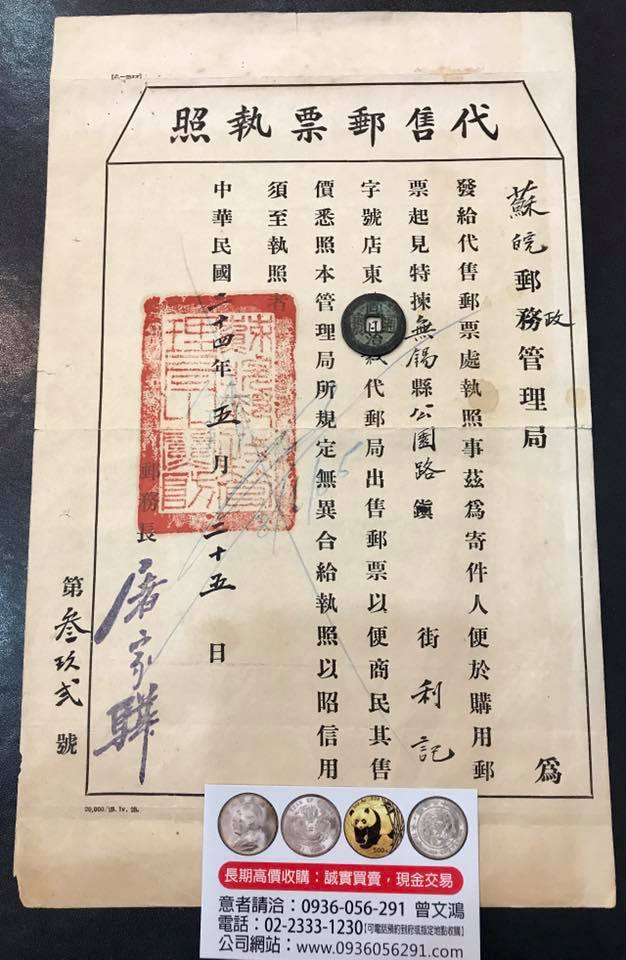 代售郵票執照
蘇皖郵務政管理局 爲
發給代售郵票處執照事茲爲寄件人便於購用郵
票起見特揀無錫縣公園路鎭 街利記
字號店東 代郵局出售郵票以便商民其售
價悉照本管理局所規定無異合給執照以昭信用
須至執照者
中華民國二十四年五月二十五日
郵務長 屠家驊
第叁玖貳號
長期高價收購：誠實買賣，現金交易
意者請洽：0936-056-291 曾文鴻
電話：02-2333-1230【可電話預約到府或指定地點收購】
公司網站：www.0936056291.com